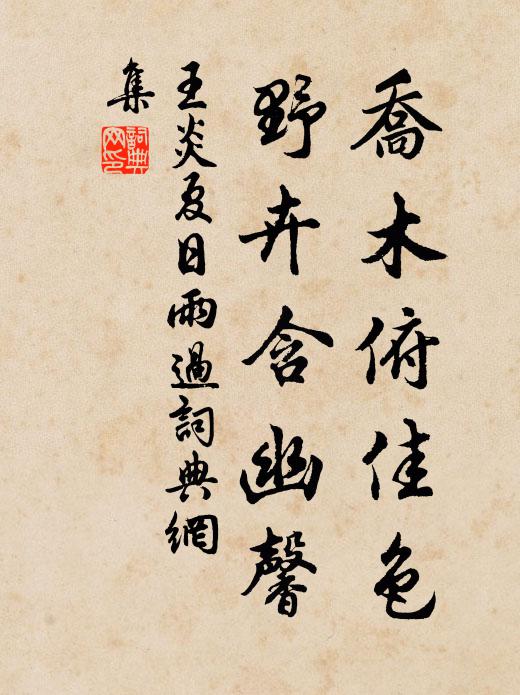 喬木俯佳色
野卉含幽馨
王炎夏日雨過詞典網
集
詞典
网印